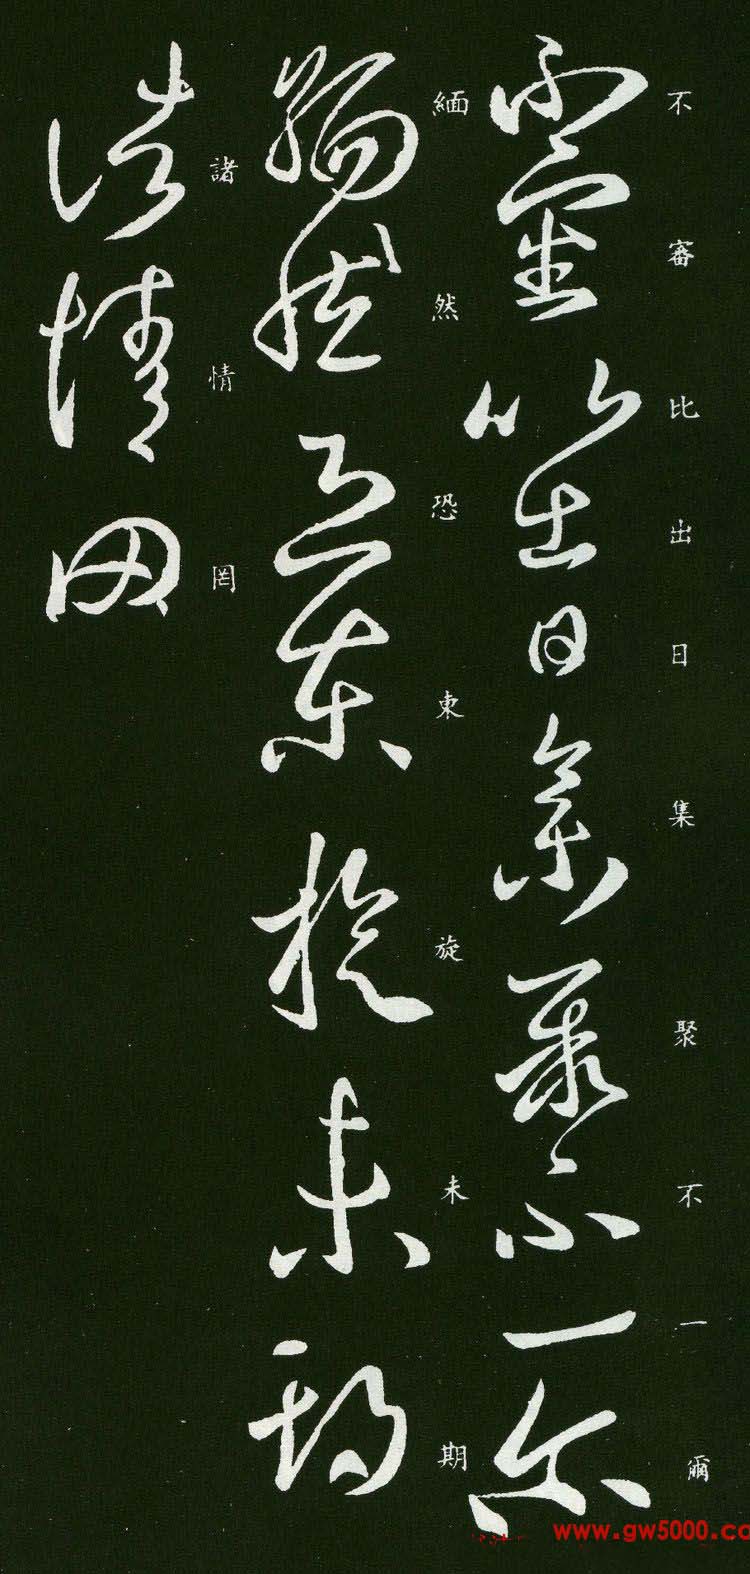 不審比出日集聚不一爾
緬然恐東旋未期
諸情罔
www.gw5000.co